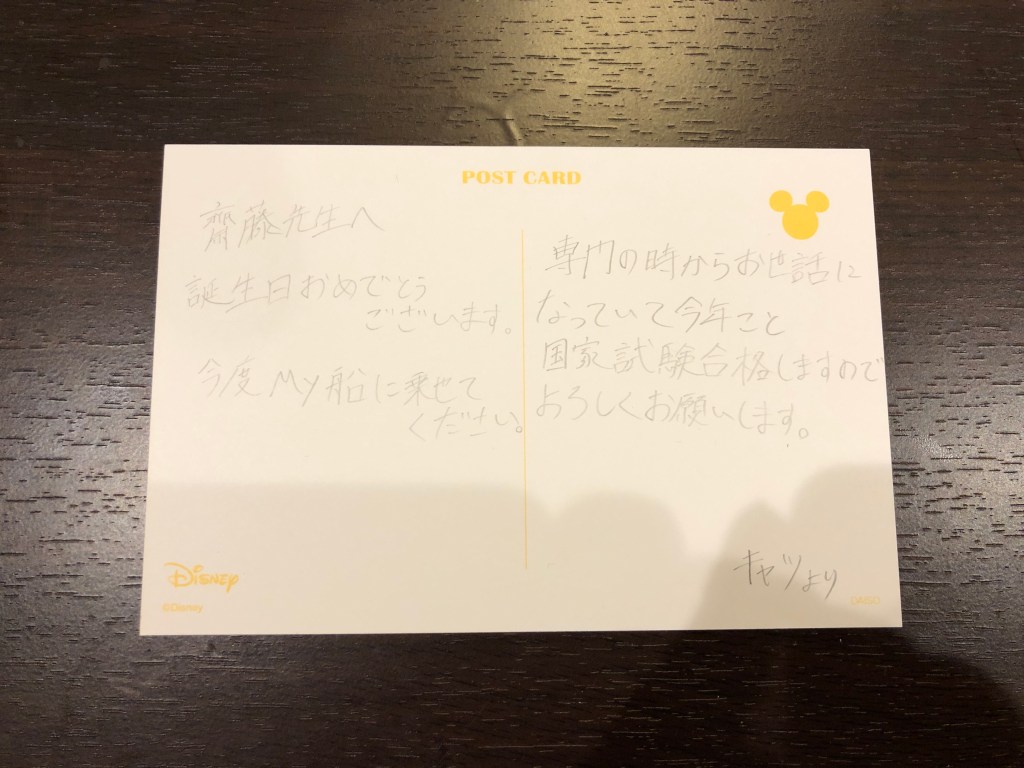 POST CARD
齋藤先生へ
誕生日おめでとう
ございます。
今度My船に乗せて
ください。
専門の時からお世話に
なっていて今年こと
国家試験合格しますので
よろしくお願いします。
キャツより
Disney
©Disney
DAISO